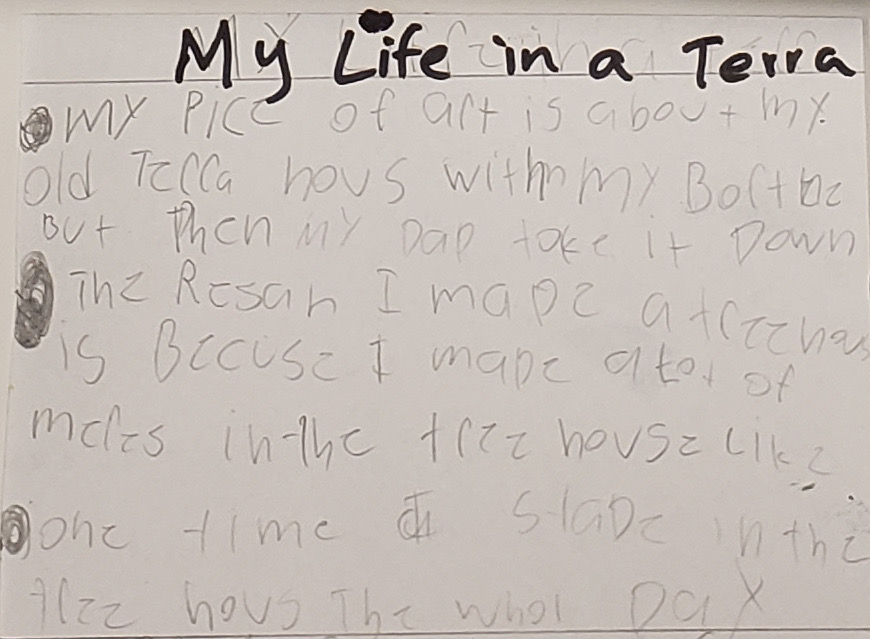 My Life in a Terra
My Pice of art is about my
old Terra hous within my Bortbe
But then my DaD take it Down
The Resan I maDe a treehas
is Becuse I maDe a lot of
meres in the tree house like
one time I staDe in the
tree hous The whol Day